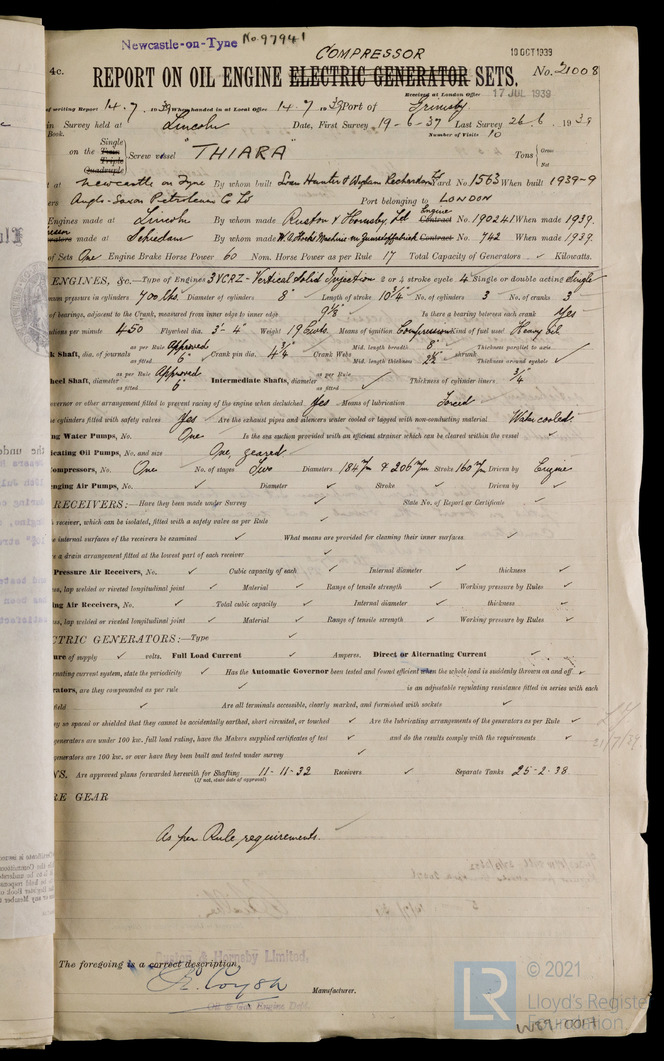 Newcastle-on-Tyne No. 97941
COMPRESSOR
10 OCT 1939
4c. REPORT ON OIL ENGINE ELECTRIC GENERATOR SETS. No. 21008
Received at London Office 17 JUL 1939
of writing Report 14.7. 1939 When handed in at Local Office 14.7 1939 Port of Grimsby
in Survey held at Lincoln Date, First Survey 19-6-37 Last Survey 26.6. 1939
Book. Number of Visits 10
on the Single Twin Triple Quadruple Screw vessel "THIARA" Tons Gross Net
at Newcastle on Tyne By whom built Swan Hunter & Wigham Richardson Ld Yard No. 1563 When built 1939-9
ers Anglo-Saxon Petroleum Co Ld Port belonging to LONDON
Engines made at Lincoln By whom made Ruston & Hornsby, Ld Engine Contract No. 190241 When made 1939.
made at Schiedam By whom made Contract No. 742 When made 1939.
of Sets One Engine Brake Horse Power 60 Nom. Horse Power as per Rule 17 Total Capacity of Generators Kilowatts.
ENGINES, &c.—Type of Engines 3VCRZ - Vertical Solid Injection 2 or 4 stroke cycle 4 Single or double acting Single
um pressure in cylinders 700 lbs. Diameter of cylinders 8" Length of stroke 10 3/4" No. of cylinders 3 No. of cranks 3
of bearings, adjacent to the Crank, measured from inner edge to inner edge 9 1/2" Is there a bearing between each crank Yes
utions per minute 450 Flywheel dia. 3'-4" Weight 19 Cwts. Means of ignition Compression Kind of fuel used Heavy Oil
k Shaft, dia. of journals as per Rule Approved as fitted 6" Crank pin dia. 4 3/4" Crank Webs Mid. length breadth 8" Mid. length thickness 2 1/2" shrunk Thickness parallel to axis Thickness around eyehole
heel Shaft, diameter as per Rule Approved as fitted 6" Intermediate Shafts, diameter as per Rule as fitted Thickness of cylinder liners 3/4"
overnor or other arrangement fitted to prevent racing of the engine when declutched Yes Means of lubrication Forced
e cylinders fitted with safety valves Yes Are the exhaust pipes and silencers water cooled or lagged with non-conducting material Water cooled.
ng Water Pumps, No. One Is the sea suction provided with an efficient strainer which can be cleared within the vessel
icating Oil Pumps, No. and size One, geared
ompressors, No. One No. of stages Two Diameters 184 m/m & 206 m/m Stroke 160 m/m Driven by Engine
enging Air Pumps, No. Diameter Stroke Driven by
RECEIVERS:—Have they been made under Survey State No. of Report or Certificate
receiver, which can be isolated, fitted with a safety valve as per Rule
e internal surfaces of the receivers be examined What means are provided for cleaning their inner surfaces
e a drain arrangement fitted at the lowest part of each receiver
Pressure Air Receivers, No. Cubic capacity of each Internal diameter thickness
s, lap welded or riveted longitudinal joint Material Range of tensile strength Working pressure by Rules
ing Air Receivers, No. Total cubic capacity Internal diameter thickness
s, lap welded or riveted longitudinal joint Material Range of tensile strength Working pressure by Rules
CTRIC GENERATORS:—Type
ure of supply volts. Full Load Current Amperes. Direct or Alternating Current
rnating current system, state the periodicity Has the Automatic Governor been tested and found efficient when the whole load is suddenly thrown on and off
rators, are they compounded as per rule is an adjustable regulating resistance fitted in series with each
field Are all terminals accessible, clearly marked, and furnished with sockets
ey so spaced or shielded that they cannot be accidentally earthed, short circuited, or touched Are the lubricating arrangements of the generators as per Rule
generators are under 100 kw. full load rating, have the Makers supplied certificates of test and do the results comply with the requirements
21/7/39
generators are 100 kw. or over have they been built and tested under survey
NS. Are approved plans forwarded herewith for Shafting 11-11-32 Receivers Separate Tanks 25-2-38
(If not, state date of approval)
RE GEAR
As per Rule requirements.
Ruston & Hornsby Limited.
The foregoing is a correct description,
Manufacturer.
Oil & Gas Engine Dept.
LR © 2021
Lloyd's Register
Foundation